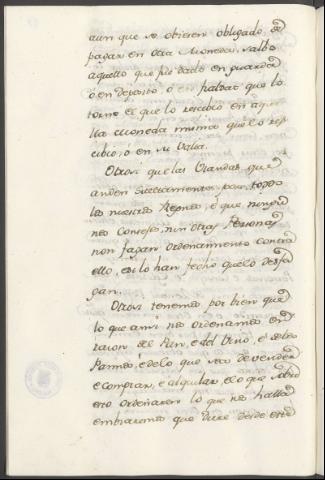 aun que se obieren obligado, de
pagar en otra Moneda, salbo
aquello que fue dado en guarda
o en deposito, o en fialdat que lo
torne el que lo rescibio en aque-
lla moneda misma que lo res-
cibio, o en su valia.
Otrosi que las Viandas que
anden sueltamente por todos
los nuestros Regnos, e que ningu-
nos Consejos, nin otras Personas
non fagan Ordenamiento contra
ello, e si lo han fecho que lo desfa-
gan.
Otrosi tenemos por bien que
lo que ami nos ordenamos en
razon del Pan, e del Vino, e de los
Pannos, e de lo que se ha de vender
e comprar, e alquilar, e lo que sobre
esto ordenaren los que nos halla
embiaremos que dure desde este